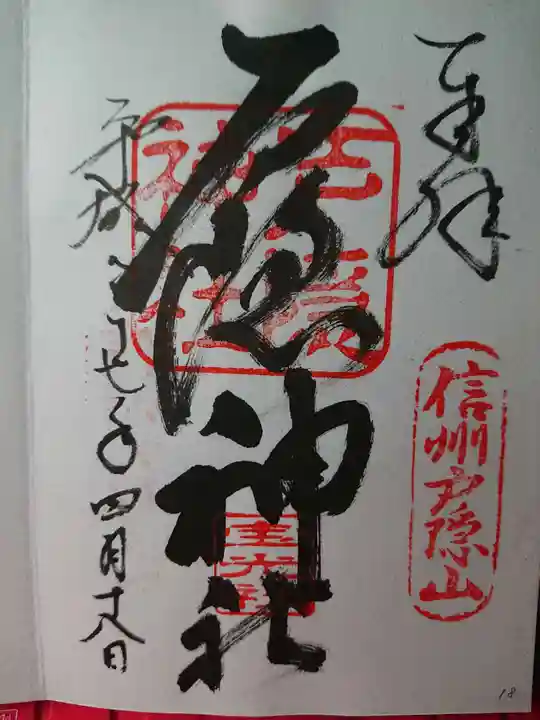 奉拝
信州戸隠山
戸隠神社
戸隠神社
宝光社
平成二十七年四月十八日
18